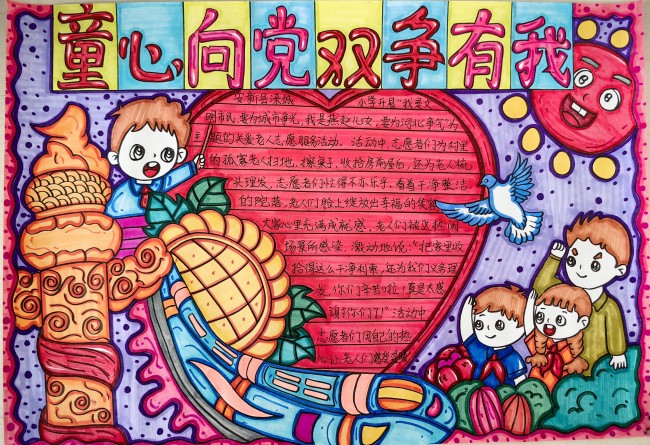 童心向党双争有我
安新县深城 小学开展"我是文
明市民,要为城市争光,我是燕赵儿女,要为河北争气"为
主题的关爱老人志愿服务活动。活动中,志愿者们为村里
的孤寡老人扫地、擦桌子、收拾房前屋后,还为老人梳
头理发,志愿者们忙得不亦乐乎,看着干净整洁
的院落,老人们脸上绽放出幸福的笑容
大家心里充满成就感。老人们被这热闹
场景所感染,激动地说:"把家里收
拾得这么干净利索,还为我们义务理
发,你们辛苦啦!真是太感
谢你们了!"活动中
志愿者们用自己的热
心让老人们感受